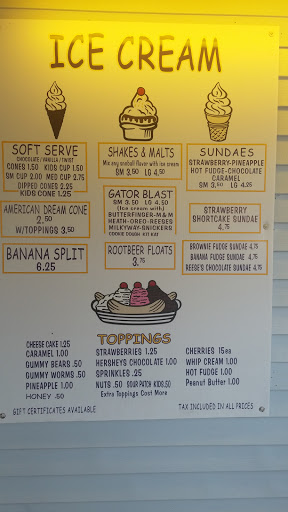 ICE CREAM
SOFT SERVE
CHOCOLATE / VANILLA / TWIST
CONES 1.50 KIDS CUP 1.50
SM CUP 2.00 MED CUP 2.75
DIPPED CONES 2.25
KIDS CONE 1.25
AMERICAN DREAM CONE
2.50
W/TOPPINGS 3.50
BANANA SPLIT
6.25
SHAKES & MALTS
Mix any snoball flavor with ice cream
SM 3.50 LG 4.50
GATOR BLAST
SM 3.50 LG 4.50
(Ice cream with)
BUTTERFINGER-M&M
HEATH-OREO-REESES
MILKYWAY-SNICKERS
COOKIE DOUGH KIT KAT
ROOTBEER FLOATS
3.75
SUNDAES
STRAWBERRY-PINEAPPLE
HOT FUDGE-CHOCOLATE
CARAMEL
SM 3.50 LG 4.25
STRAWBERRY
SHORTCAKE SUNDAE
4.75
BROWNIE FUDGE SUNDAE 4.75
BANANA FUDGE SUNDAE 4.75
REESE'S CHOCOLATE SUNDAE 4.75
TOPPINGS
CHEESE CAKE 1.25
CARAMEL 1.00
GUMMY BEARS .50
GUMMY WORMS .50
PINEAPPLE 1.00
HONEY .50
STRAWBERRIES 1.25
HERSHEYS CHOCOLATE 1.00
SPRINKLES .25
NUTS .50 SOUR PATCH KIDS.50
Extra Toppings Cost More
CHERRIES 15ea
WHIP CREAM 1.00
HOT FUDGE 1.00
Peanut Butter 1.00
GIFT CERTIFICATES AVAILABLE
TAX INCLUDED IN ALL PRICES